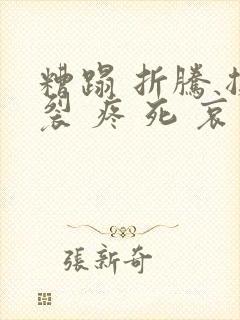 糟蹋 折騰
裂 疼 死 哀
張新奇